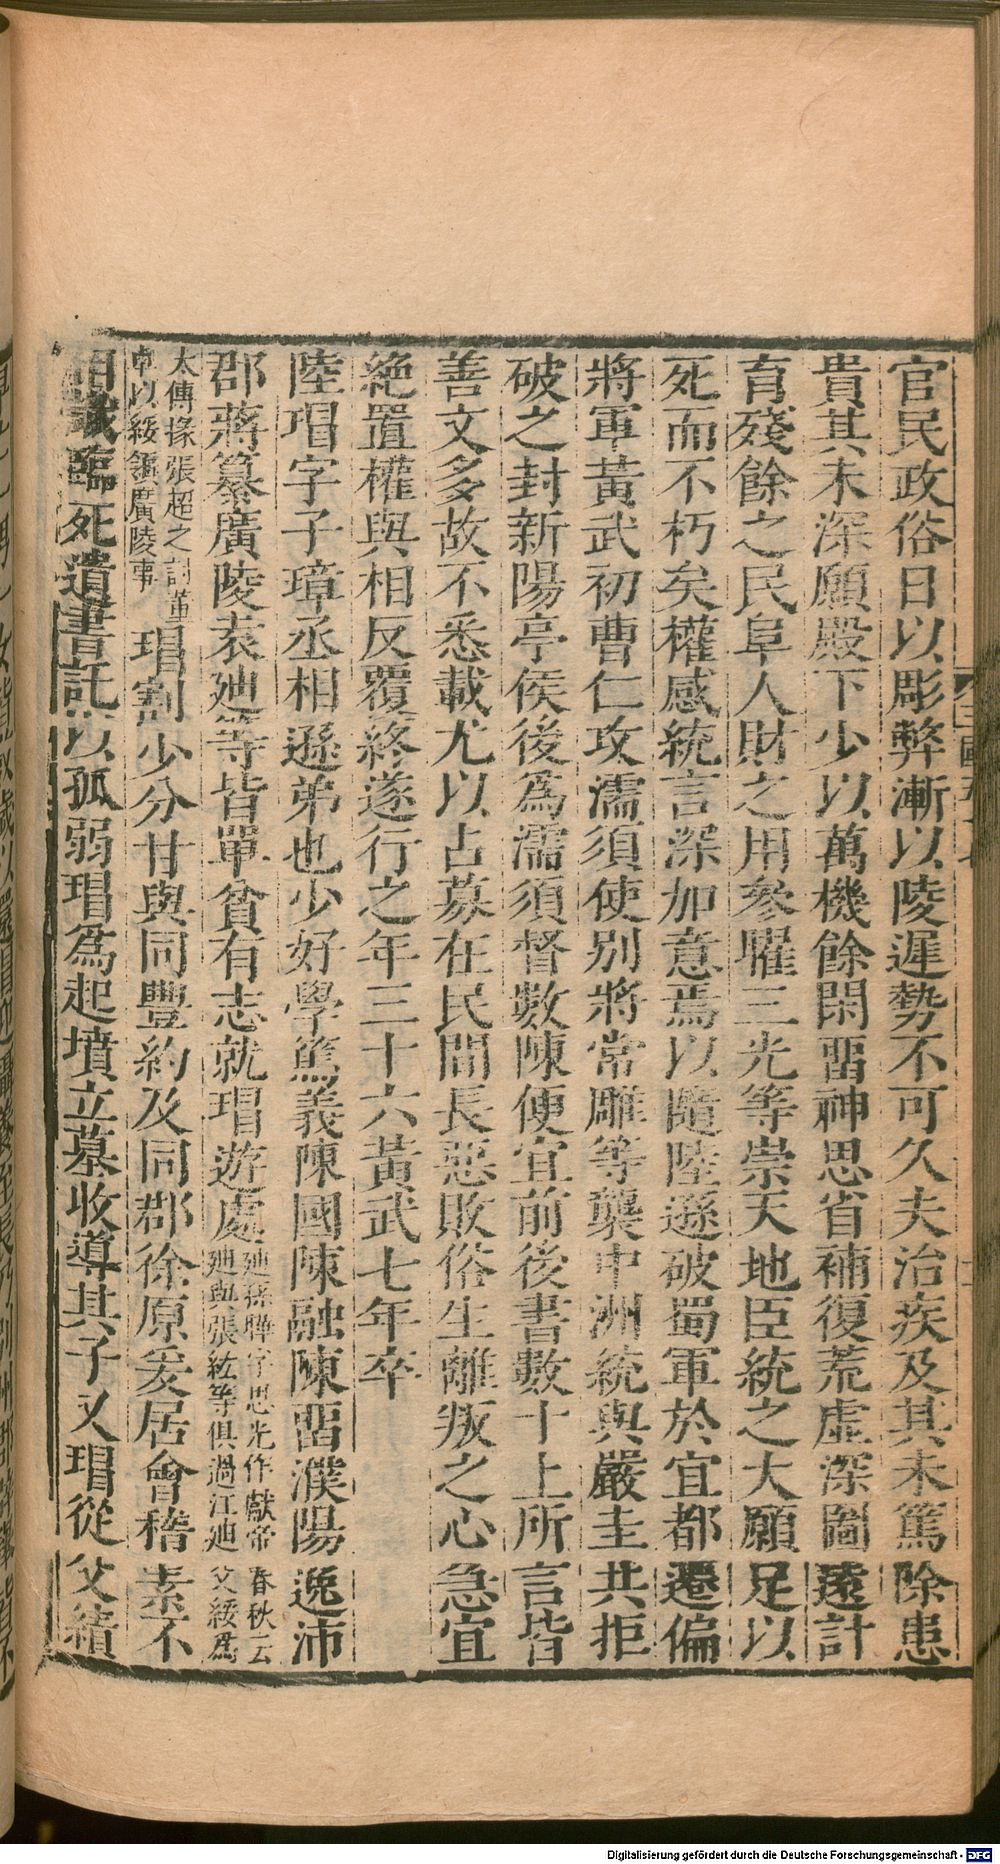 官民政俗日以彫弊漸以陵遲勢不可久夫治疾及其未篤除患
貴其未深願殿下少以萬機餘閑畱神思省補復荒虛深圖遠計
育殘餘之民阜人財之用參曜三光等崇天地臣統之大願足以
死而不朽矣權感統言深加意焉以隨陸遜破蜀軍於宜都遷偏
將軍黃武初曹仁攻濡須使別將常雕等襲中洲統與嚴圭共拒
破之封新陽亭侯後爲濡須督數陳便宜前後書數十上所言皆
善文多故不悉載尤以占募在民間長惡敗俗生離叛之心急宜
絶置權與相反覆終遂行之年三十六黃武七年卒
陸瑁字子璋丞相遜弟也少好學篤義陳國陳融陳畱濮陽逸沛
郡蔣纂廣陵袁廸等皆單貧有志就瑁遊處廸孫曄字思光作獻帝春秋云
廸與張紘等俱過江廸父綏爲
太傅掾張超之討董
卓以綏領廣陵事瑁割少分甘與同豐約及同郡徐原爰居會稽素不
相識臨死遺書託以孤弱瑁爲起墳立墓收導其子又瑁從父績
Digitalisierung gefördert durch die Deutsche Forschungsgemeinschaft - DFG